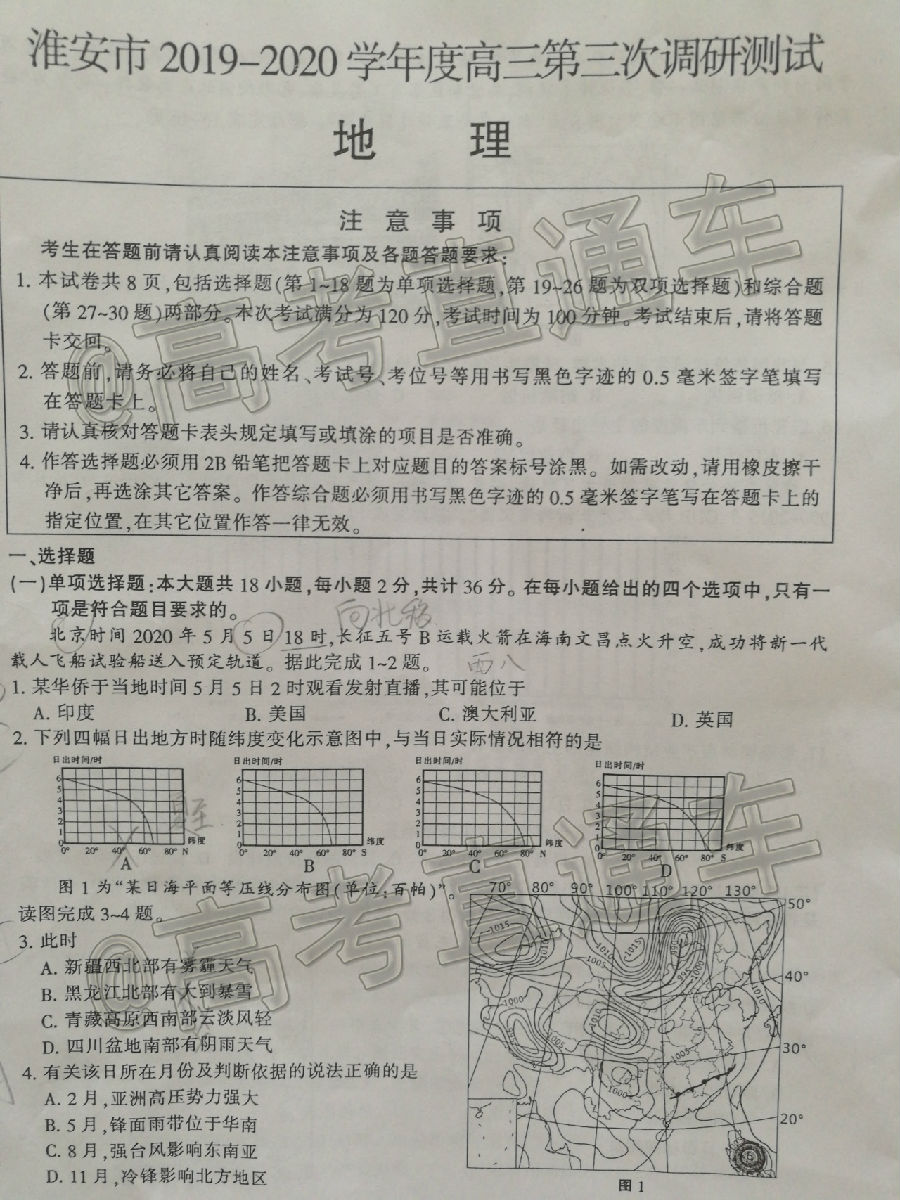 淮安市 2019-2020 学年度高三第三次调研测试
地 理
注 意 事 项
考生在答题前请认真阅读本注意事项及各题答题要求:
1. 本试卷共 8 页,包括选择题(第 1~18 题为单项选择题,第 19~26 题为双项选择题)和综合题
(第 27~30 题)两部分。本次考试满分为 120 分,考试时间为 100 分钟。考试结束后,请将答题
卡交回。
2. 答题前,请务必将自己的姓名、考试号、考位号等用书写黑色字迹的 0.5 毫米签字笔填写
在答题卡上。
3. 请认真核对答题卡表头规定填写或填涂的项目是否准确。
4. 作答选择题必须用 2B 铅笔把答题卡上对应题目的答案标号涂黑。如需改动,请用橡皮擦干
净后,再选涂其它答案。作答综合题必须用书写黑色字迹的 0.5 毫米签字笔写在答题卡上的
指定位置,在其它位置作答一律无效。
@高考直通车
一、选择题
(一)单项选择题:本大题共 18 小题,每小题 2 分,共计 36 分。在每小题给出的四个选项中,只有一
项是符合题目要求的。
向北移
北京时间 2020 年 5 月 5 日 18 时,长征五号 B 运载火箭在海南文昌点火升空,成功将新一代
载人飞船试验船送入预定轨道。据此完成 1~2 题。
西八
1. 某华侨于当地时间 5 月 5 日 2 时观看发射直播,其可能位于
A. 印度 B. 美国 C. 澳大利亚 D. 英国
2. 下列四幅日出地方时随纬度变化示意图中,与当日实际情况相符的是
日出时间/时 日出时间/时 日出时间/时 日出时间/时
6 6 6 6
5 5 5 5
4 4 4 4
3 3 3 3
2 2 2 2
1 1 1 1
纬度 纬度 纬度 纬度
0° 20° 40° 60° 80° N 0° 20° 40° 60° 80° S 0° 20° 40° 60° 80° N 0° 20° 40° 60° 80° S
A B C D
@高考直通车
图 1 为“某日海平面等压线分布图(单位:百帕)”。
读图完成 3~4 题。
3. 此时
A. 新疆西北部有雾霾天气
B. 黑龙江北部有大到暴雪
C. 青藏高原西南部云淡风轻
D. 四川盆地南部有阴雨天气
4. 有关该日所在月份及判断依据的说法正确的是
A. 2 月,亚洲高压势力强大
B. 5 月,锋面雨带位于华南
C. 8 月,强台风影响东南亚
D. 11 月,冷锋影响北方地区
70° 80° 90° 100° 110° 120° 130°
50°
40°
30°
20°
1015
1015
1005
1005
1000
1010
1005
1000
图 1